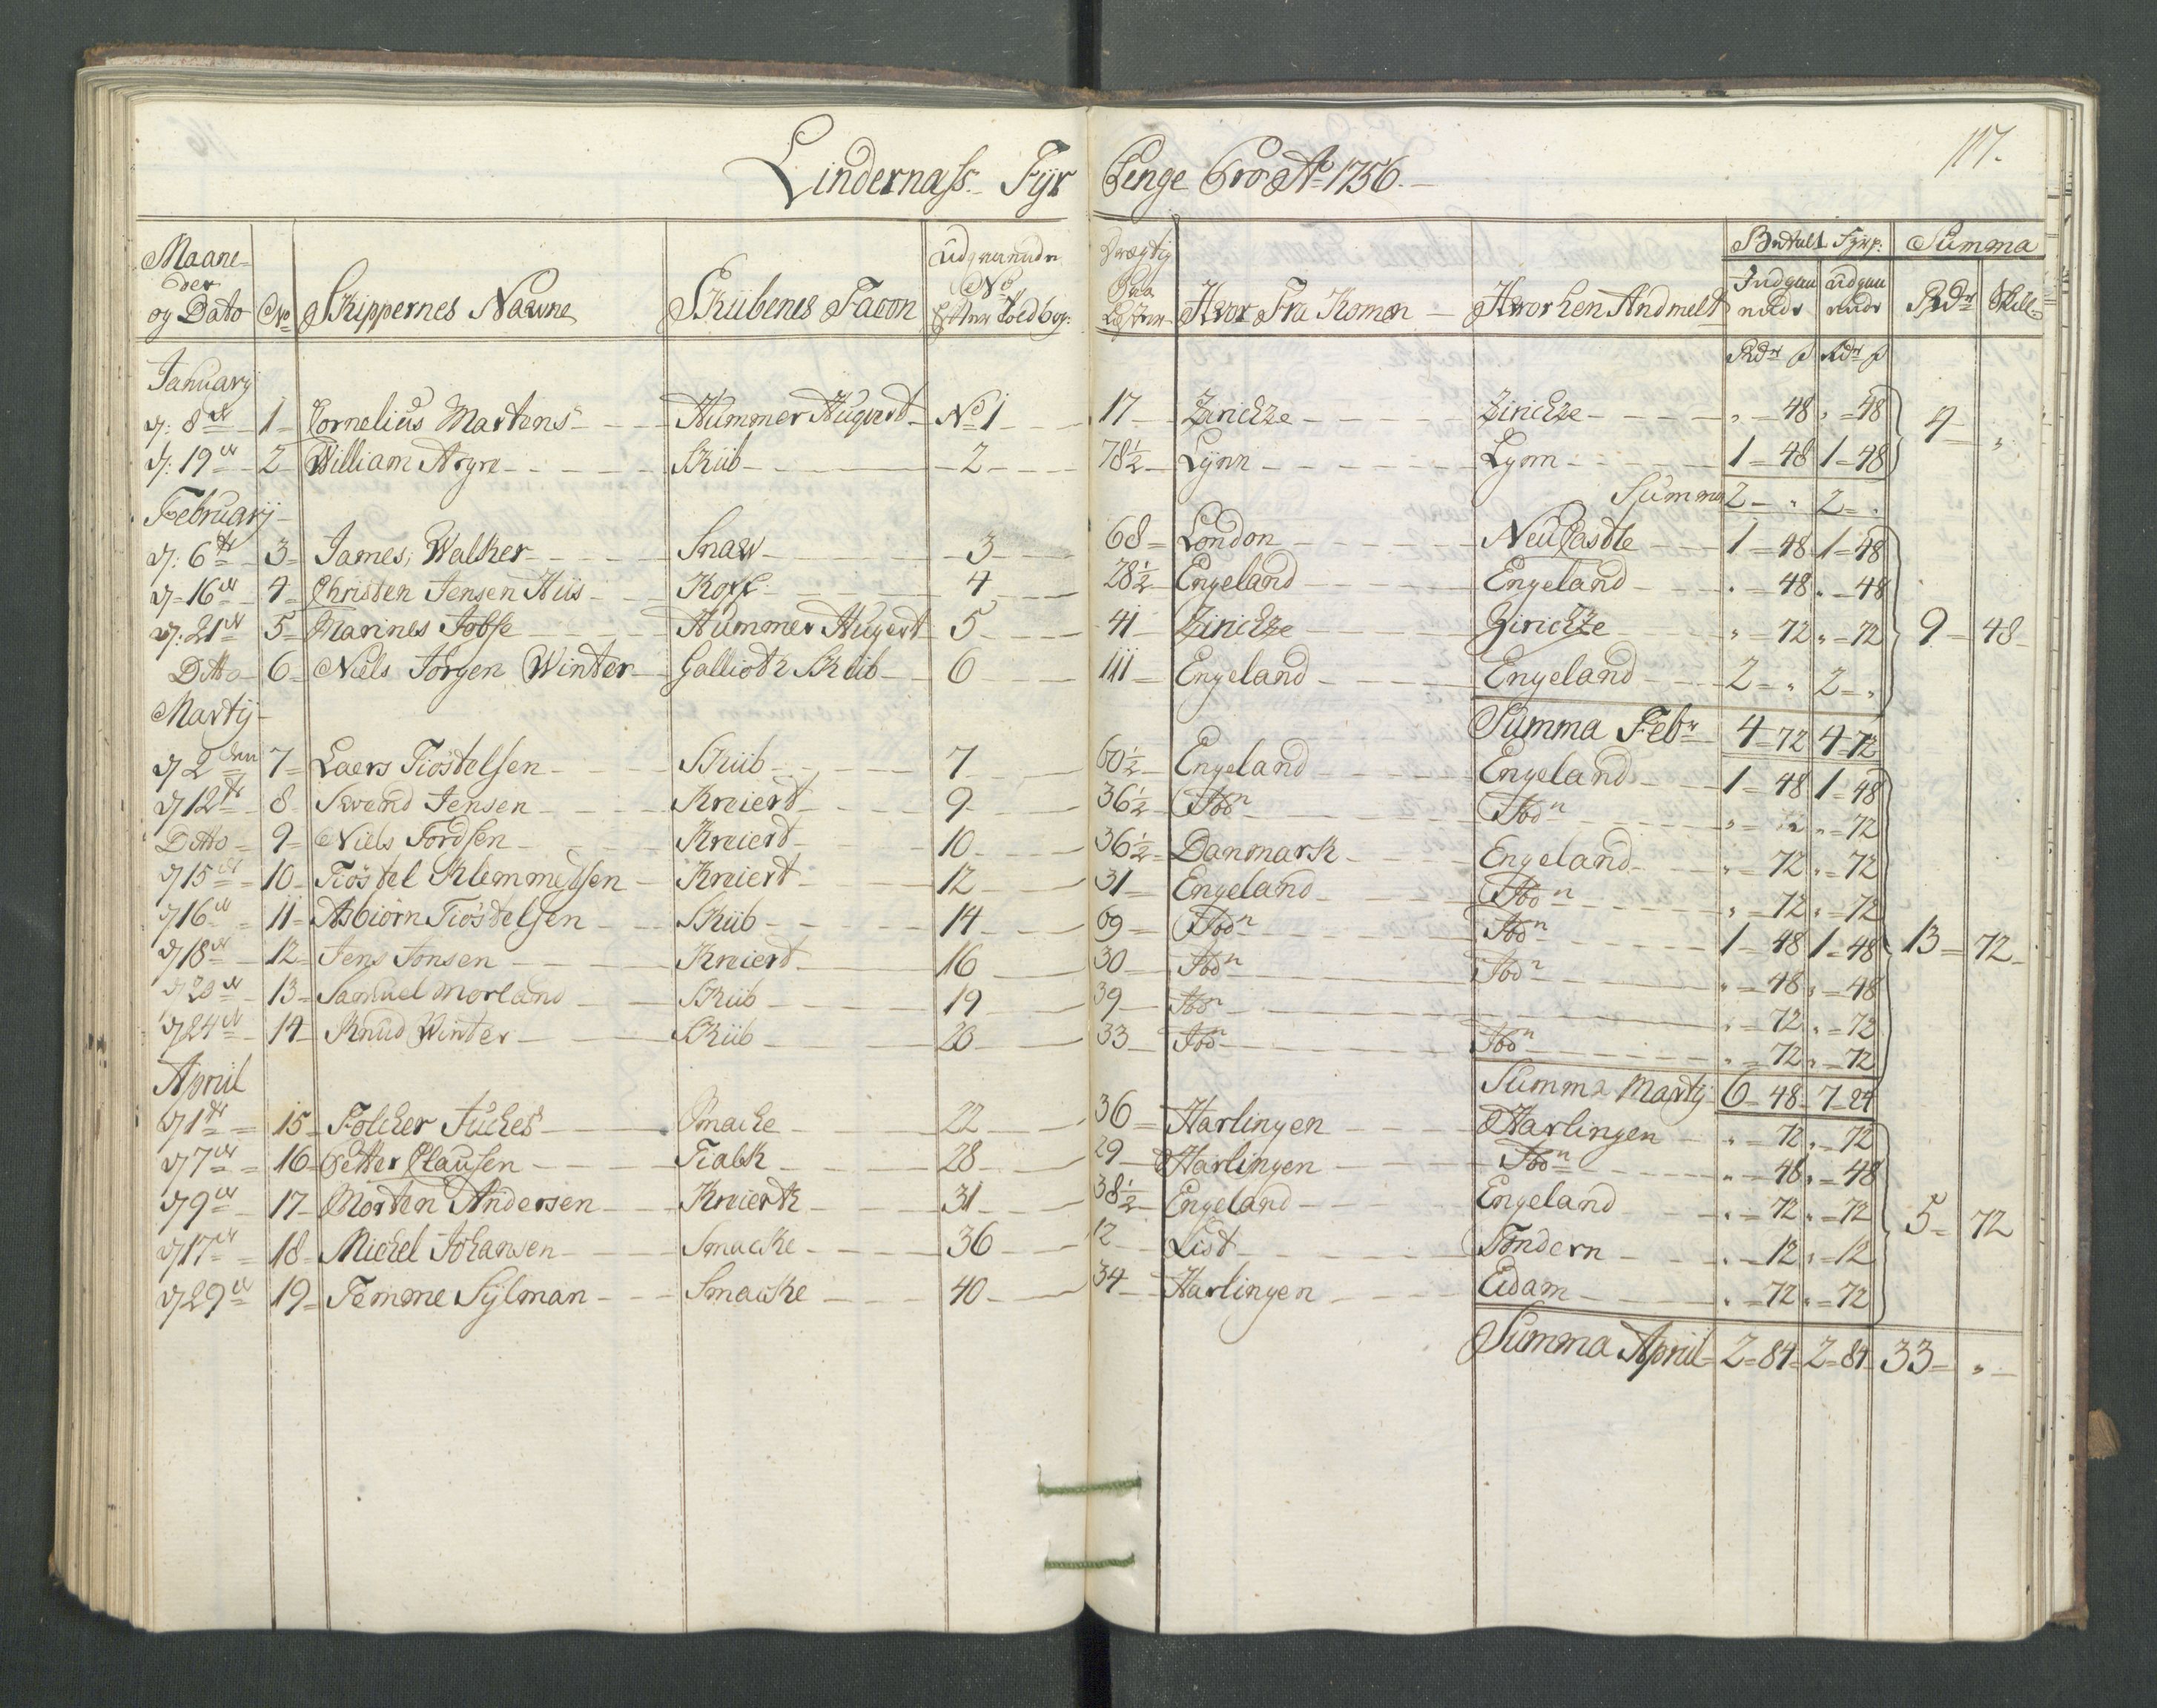 117.
Lindernass Fyr Penge Pro Ao 1756.
Maane-
der
og Dato No Skippernes Nawne Skübenes Facon Udgaaende No Efter Toldbog: Drægtig Paa Læster Hvor Fra Komen Hvor hen Andmelt Betalt Fyrp: Indgaaende Udgaaende Summa Rdr Skill
Rdr s Rdr s
January
d: 8de 1 Cornelius Martens Hummer Hugert No 1 17 Zirickze Zirickze " 48 " 48
d: 19de 2 William Skiib 2 78½ Lynn Lynn 1 48 1 48 4 "
Summa 2 " 2 "
February
d: 6te 3 James Walker Snaw 3 68 London NeuCastle 1 48 1 48
d 16de 4 Christen Jensen Hiis Koff 4 28½ Engeland Engeland " 48 " 48
d: 21de 5 Marines Jobse Hummer Hugert 5 41 Zirickze Zirickze " 72 " 72 9 48
Ditto 6 Niels Jörgen Winter Gallioth Skiib 6 111 Engeland Engeland 2 " 2 "
Summa Febr 4 72 4 72
Martij
d 2den 7 Laers Tiöstelsen Skiib 7 60½ Engeland Engeland 1 48 1 48
d 12te 8 Swend Jensen Kreiert 9 36½ Ibdn Ibdn " " 72
Ditto 9 Niels Tordsen Kreiert 10 36½ Danmark Engeland " 72 " 72
d 15de 10 Tiöstel Klemmetsen Kreiert 12 31 Engeland Ibdn " 72 " 72
d 16de 11 Asbiörn Tiöstelsen Skiib 14 69 Ibdn Ibdn 1 48 1 48 13 72
d 18de 12 Jens Jonsen Kreiert 16 30 Ibdn Ibdn " 48 " 48
d 20de 13 Samuel Morland Skiib 19 39 Ibdn " 72 " 72
d 24de 14 Knud Winter Skiib 20 33 Ibdn Ibdn " 72 " 72
Summa Martij 6 48 7 24
April
d 1te 15 Folcher Fuches Smacke 22 36 Harlingen Harlingen " 72 " 72
d 7de 16 Petter Clausen Tialk 28 29 Harlingen Ibdn " 48 " 48
d 9de 17 Morten Andersen Kreiert 31 38½ Engeland Engeland " 72 " 72
d 17de 18 Michel Johansen Smacke 36 12 List Tondern " 12 " 12 5 72
d 29de 19 Femme Sylman Smacke 40 34 Harlingen Eidam " 72 " 72
Summa Apriil 2 84 2 84 33 "